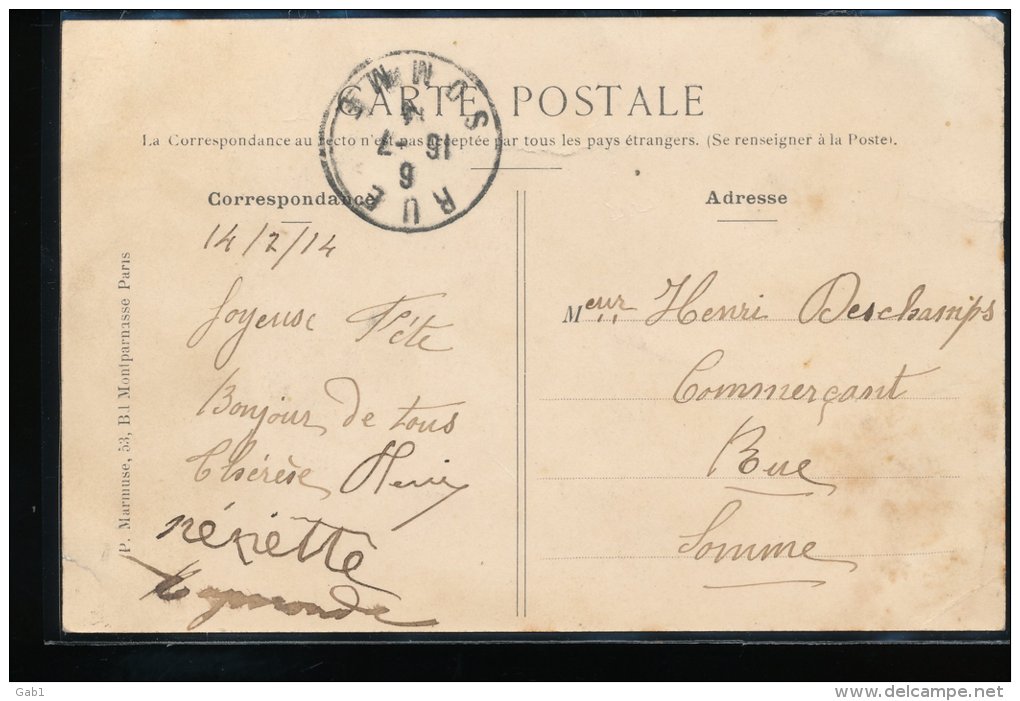 CARTE POSTALE
La Correspondance au recto n'est pas acceptée par tous les pays étrangers. (Se renseigner à la Poste).
RUE
SOMME
6
16 -7
14
Correspondance
14/7/14
Joyeuse Fête
Bonjour de tous
Thérèse Henri
Raymonde
P. Marmuse, 53, B.d Montparnasse Paris
Adresse
Meur Henri Deschamps
Commerçant
Rue
Somme
Gab1
www.delcampe.net